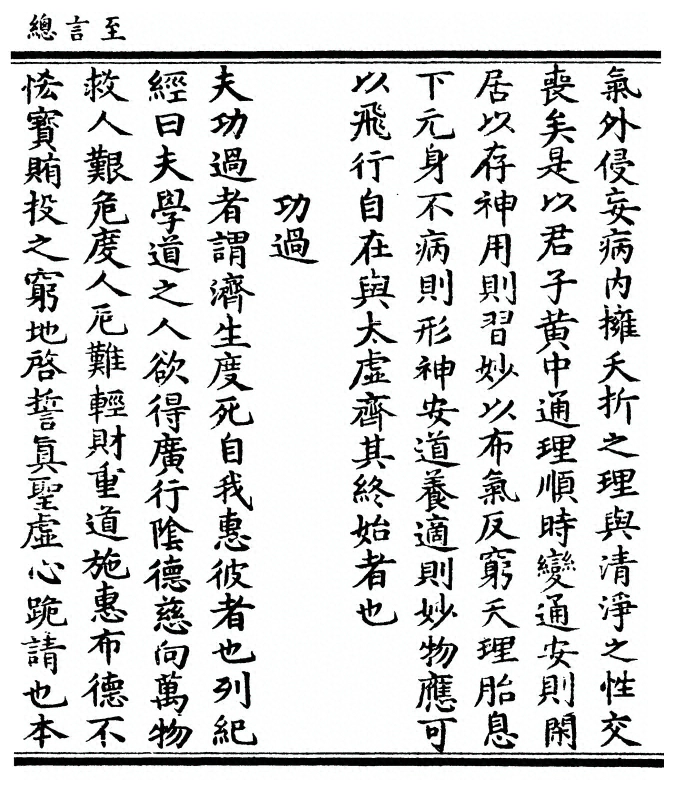 至言總
氣外侵妄病内擁夭折之理與清淨之性交
喪矣是以君子黄中通理順時變通安則閑
居以存神用則習妙以布氣反窮天理胎息
下元身不病則形神安道養適則妙物應可
以飛行自在與太虛齊其終始者也
功過
夫功過者謂濟生度死自我惠彼者也列紀
經曰夫學道之人欲得廣行陰德慈向萬物
救人艱危度人厄難輕財重道施惠布德不
恡寳賄投之窮地啓誓真聖虛心跪請也本